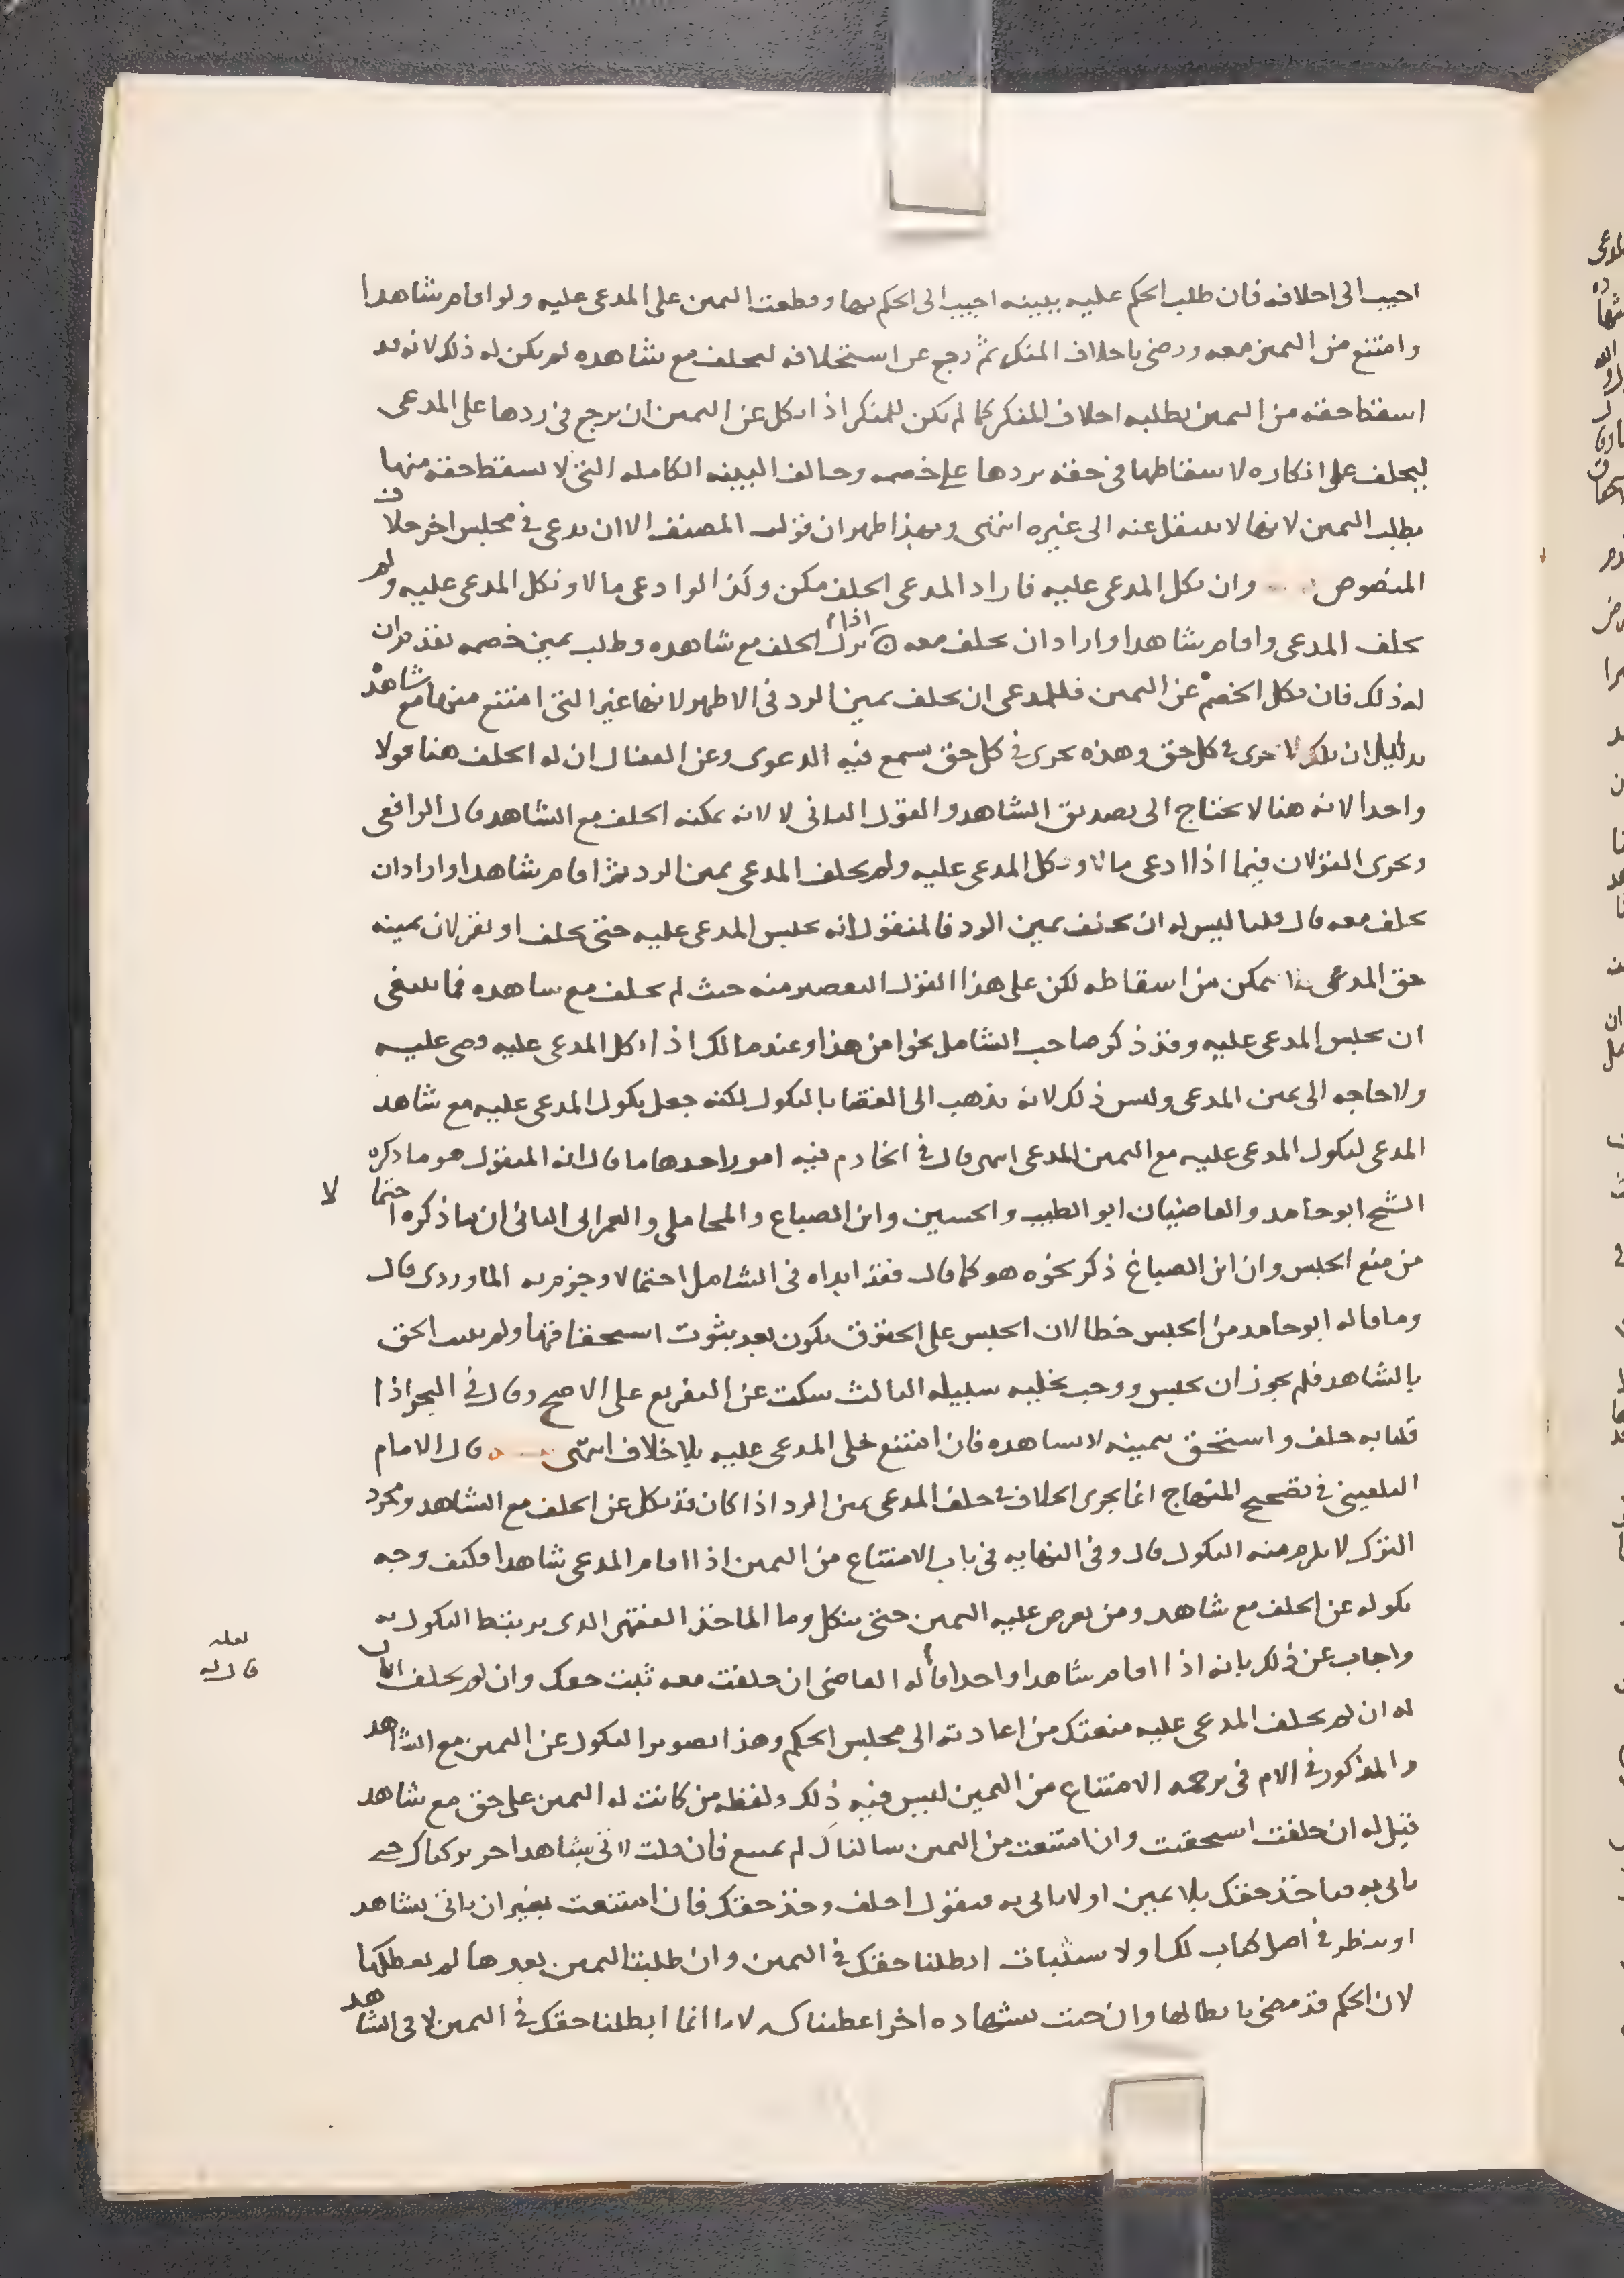 اجيب الى احلافه فان طلب الحكم عليه ببينه اجيب الى الحكم بها وقطعت اليمين على المدعى عليه ولو اقام شاهدا
وامتنع من اليمين معه ورضى باحلاف المنكر ثم رجع عن استحلافه ليحلف مع شاهده لم يكن له ذلك لانه قد
اسقط حقه من اليمين بطلبه احلاف المنكر كما لم يكن للمنكر اذا نكل عن اليمين ان يرجع فى ردها على المدعى
ليحلف على انكاره لاسقاطها فى حقه بردها على خصمه وخالف البينه الكامله التى لا يسقط حقه منها
بطلب اليمين لانها لا تنتقل عنه الى غيره انتهى وبهذا ظهر ان قول المصنف الا ان يدعى فى مجلس اخر خلاف
المنصوص وان نكل المدعى عليه فاراد المدعى الحلف مكن وكذا لو ادعى مالا ونكل المدعى عليه ولم
يحلف المدعى واقام شاهدا واراد ان يحلف معه اذا ترك الحلف مع شاهده وطلب يمين خصمه فقد مر ان
له ذلك فان نكل الخصم عن اليمين فللمدعى ان يحلف يمين الرد فى الاظهر لانها غير التى امتنع منها مع شاهده
بدليل ان تلك لا تجرى فى كل حق وهذه تجرى فى كل حق يسمع فيه الدعوى وعن القفال ان له الحلف هنا قولا
واحدا لانه هنا لا يحتاج الى تصديق الشاهد والقول الثانى لا لانه يمكنه الحلف مع الشاهد قال الرافعى
ويجرى القولان فيما اذا ادعى مالا ونكل المدعى عليه ولم يحلف المدعى يمين الرد ثم اقام شاهدا واراد ان
يحلف معه قال قلنا ليس له ان يحلف يمين الرد فالمنقول انه يحبس المدعى عليه حتى يحلف او يقر لان يمينه
حق المدعى فلا يمكن من اسقاطه لكن على هذا القول التقصير منه حيث لم يحلف مع شاهده فما ينبغى
ان يحبس المدعى عليه وقد ذكر صاحب الشامل نحوا من هذا وعند مالك اذا نكل المدعى عليه قضى عليه
ولا حاجه الى يمين المدعى وليس ذلك لانه يذهب الى القضا بالنكول لكنه جعل نكول المدعى عليه مع شاهد
المدعى كنكول المدعى عليه مع اليمين للمدعى انتهى قال فى الخادم فيه امور احدها ما قال انه المنقول هو ما ذكره
الشيخ ابو حامد والقاضيان ابو الطيب والحسين وابن الصباغ والمحاملى والعمرانى الثانى ان ما ذكره احتمالا
من منع الحبس وان ابن الصباغ ذكر نحوه هو كما قال فقد ابداه فى الشامل احتمالا وجزم به الماوردى قال
وما قاله ابو حامد من الحبس خطا لان الحبس على الحقوق يكون بعد ثبوت استحقاقها ولم يثبت الحق
بالشاهد فلم يجوز ان يحبس ووجب تخليه سبيله الثالث سكت عن التفريع على الاصح وقال فى البحر اذا
قلنا به حلف واستحق بيمينه لا بشاهده فان امتنع خلى المدعى عليه بلا خلاف انتهى قال الامام
البلقينى فى تصحيح المنهاج انما يجرى الخلاف فى حلف المدعى يمين الرد اذا كان قد نكل عن الحلف مع الشاهد ومجرد
الترك لا يلزم منه النكول قال وفى النهايه فى باب الامتناع من اليمين اذا اقام المدعى شاهدا فكيف وجه
نكوله عن الحلف مع شاهد ومن يعرض عليه اليمين حتى ينكل وما الماخذ الفقهى الذى يرتبط النكول به
واجاب عن ذلك بانه اذا اقام شاهدا واحدا قال له القاضى ان حلفت معه ثبت حقك وان لم يحلف قال
له ان لم يحلف المدعى عليه منعتك من اعادته الى مجلس الحكم وهذا تصوير النكول عن اليمين مع الشاهد
والمذكور فى الام فى ترجمه الامتناع من اليمين ليس فيه ذلك ولفظه من كانت له اليمين على حق مع شاهد
قيل له ان حلفت استحقت وان امتنعت من اليمين سالناك لم تمتنع فان قلت لاتى بشاهد اخر تركناك حتى
تاتى به فتاخذ حقك بلا يمين او لا تاتى به فنقول احلف وخذ حقك فان امتنعت بغير ان ياتى بشاهد
او تنظر فى اصل كتاب لك او لاستثبات ابطلنا حقك فى اليمين وان طلبت اليمين بعدها لم نعطكها
لان الحكم قد مضى بابطالها وان جيت بشهاده اخر اعطيناك لانا انما ابطلنا حقك فى اليمين لا فى الشاهد
لعله
قال له